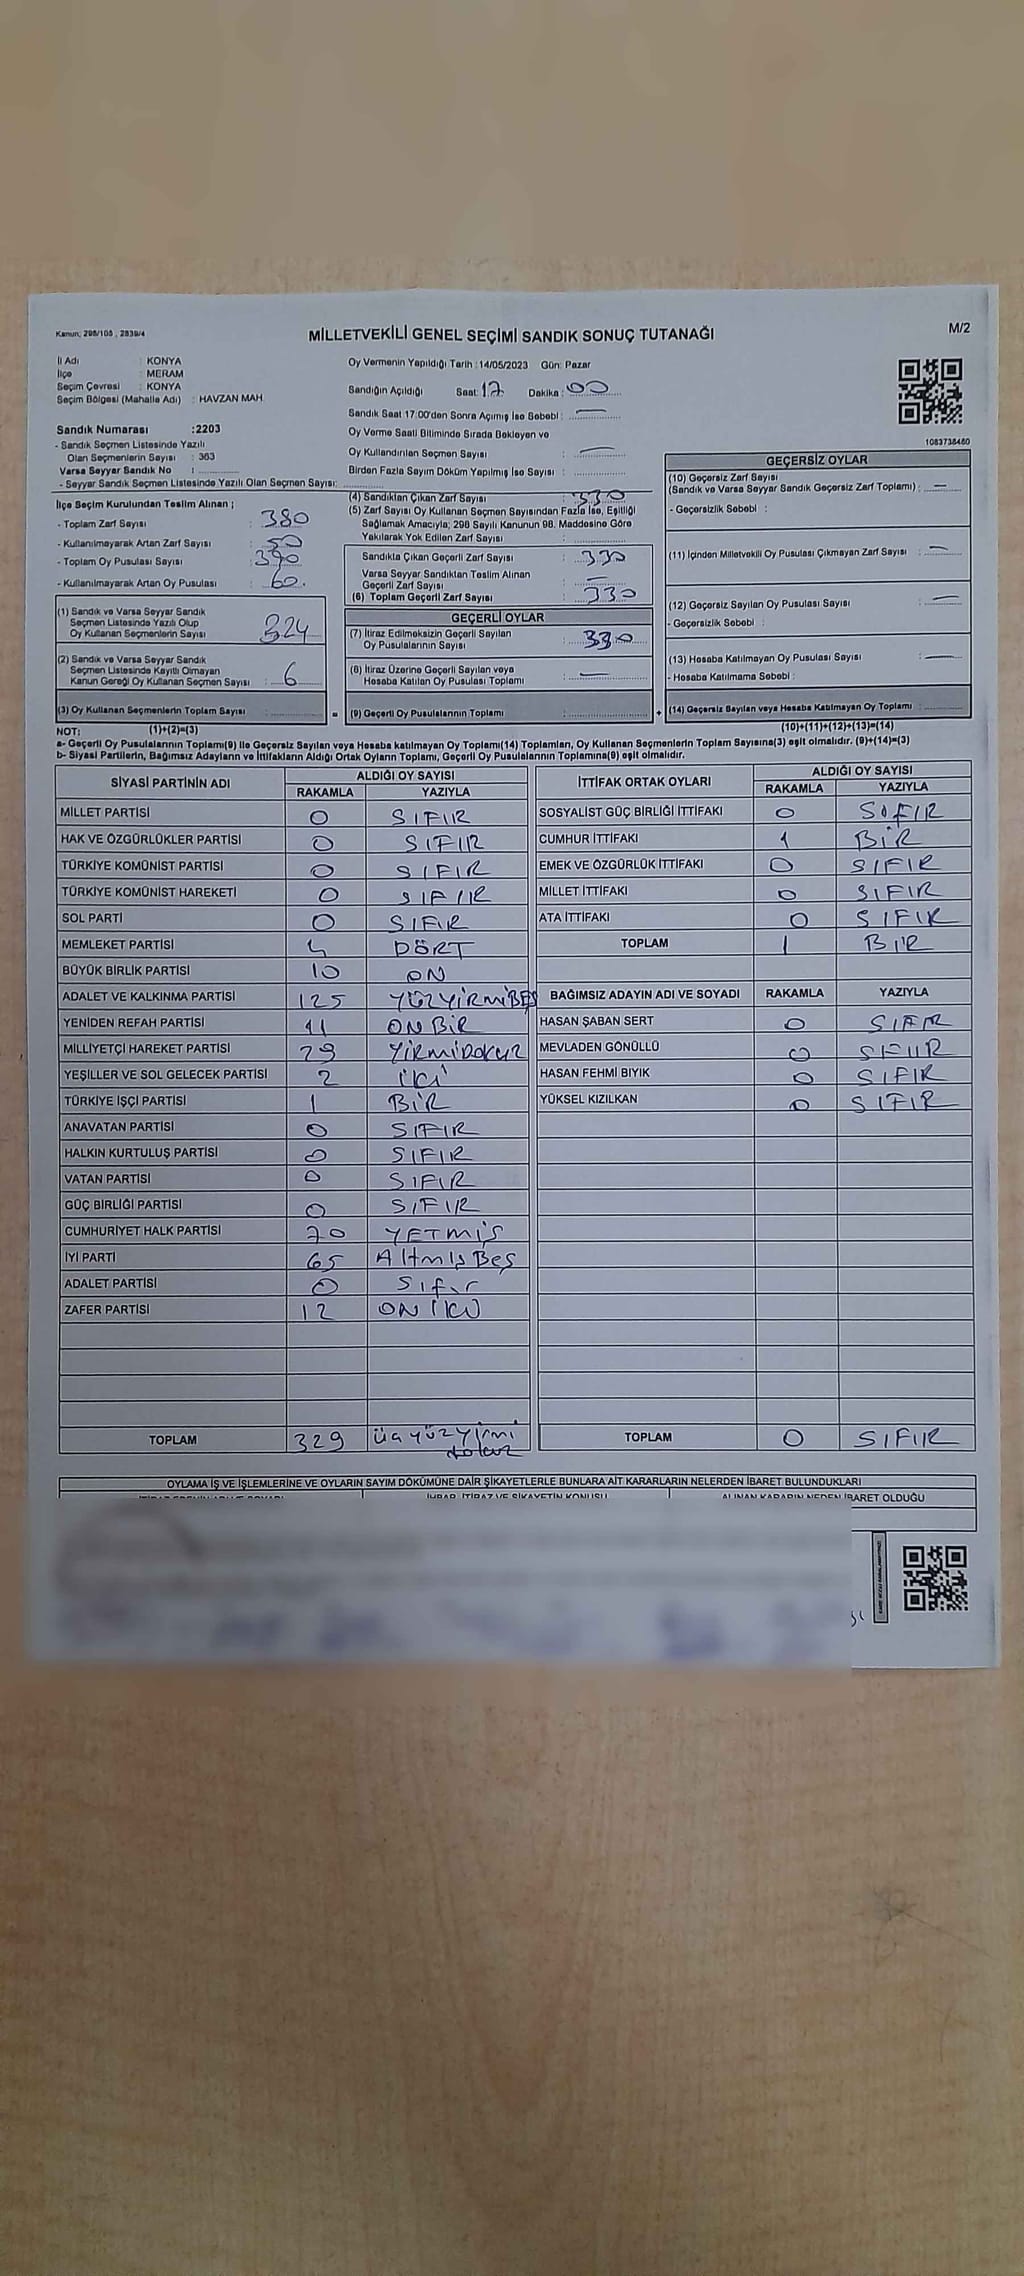 Kanun; 298/105 , 2839/4
MİLLETVEKİLİ GENEL SEÇİMİ SANDIK SONUÇ TUTANAĞI
M/2
İl Adı : KONYA
İlçe : MERAM
Seçim Çevresi : KONYA
Seçim Bölgesi (Mahalle Adı) : HAVZAN MAH.
Sandık Numarası :2203
- Sandık Seçmen Listesinde Yazılı
Olan Seçmenlerin Sayısı : 363
Varsa Seyyar Sandık No :
- Seyyar Sandık Seçmen Listesinde Yazılı Olan Seçmen Sayısı:
Oy Vermenin Yapıldığı Tarih :14/05/2023 Gün: Pazar
Sandığın Açıldığı Saat: 17 Dakika : 00
Sandık Saat 17:00'den Sonra Açımış İse Sebebi : —
Oy Verme Saati Bitiminde Sırada Bekleyen ve
Oy Kullandırılan Seçmen Sayısı : —
Birden Fazla Sayım Döküm Yapılmış İse Sayısı :
1083738480
İlçe Seçim Kurulundan Teslim Alınan ;
- Toplam Zarf Sayısı : 380
- Kullanılmayarak Artan Zarf Sayısı : 50
- Toplam Oy Pusulası Sayısı : 390
- Kullanılmayarak Artan Oy Pusulası : 60.
(1) Sandık ve Varsa Seyyar Sandık
Seçmen Listesinde Yazılı Olup
Oy Kullanan Seçmenlerin Sayısı : 324
(2) Sandık ve Varsa Seyyar Sandık
Seçmen Listesinde Kayıtlı Olmayan
Kanun Gereği Oy Kullanan Seçmen Sayısı : 6
(3) Oy Kullanan Seçmenlerin Toplam Sayısı :
(1)+(2)=(3)
(4) Sandıktan Çıkan Zarf Sayısı : 330
(5) Zarf Sayısı Oy Kullanan Seçmen Sayısından Fazla İse, Eşitliği
Sağlamak Amacıyla; 298 Sayılı Kanunun 98. Maddesine Göre
Yakılarak Yok Edilen Zarf Sayısı :
Sandıkta Çıkan Geçerli Zarf Sayısı : 330
Varsa Seyyar Sandıktan Teslim Alınan
Geçerli Zarf Sayısı : —
(6) Toplam Geçerli Zarf Sayısı : 330
GEÇERLİ OYLAR
(7) İtiraz Edilmeksizin Geçerli Sayılan
Oy Pusulalarının Sayısı : 330
(8) İtiraz Üzerine Geçerli Sayılan veya
Hesaba Katılan Oy Pusulası Toplamı : —
= (9) Geçerli Oy Pusulalarının Toplamı :
GEÇERSİZ OYLAR
(10) Geçersiz Zarf Sayısı
(Sandık ve Varsa Seyyar Sandık Geçersiz Zarf Toplamı) : —
- Geçersizlik Sebebi :
(11) İçinden Milletvekili Oy Pusulası Çıkmayan Zarf Sayısı : —
(12) Geçersiz Sayılan Oy Pusulası Sayısı : —
- Geçersizlik Sebebi :
(13) Hesaba Katılmayan Oy Pusulası Sayısı : —
- Hesaba Katılmama Sebebi :
+ (14) Geçersiz Sayılan veya Hesaba Katılmayan Oy Toplamı :
(10)+(11)+(12)+(13)=(14)
NOT:
a- Geçerli Oy Pusulalarının Toplamı(9) ile Geçersiz Sayılan veya Hesaba katılmayan Oy Toplamı(14) Toplamları, Oy Kullanan Seçmenlerin Toplam Sayısına(3) eşit olmalıdır. (9)+(14)=(3)
b- Siyasi Partilerin, Bağımsız Adayların ve İttifakların Aldığı Ortak Oyların Toplamı, Geçerli Oy Pusulalarının Toplamına(9) eşit olmalıdır.
SİYASİ PARTİNİN ADI ALDIĞI OY SAYISI
RAKAMLA YAZIYLA
MİLLET PARTİSİ 0 SIFIR
HAK VE ÖZGÜRLÜKLER PARTİSİ 0 SIFIR
TÜRKİYE KOMÜNİST PARTİSİ 0 SIFIR
TÜRKİYE KOMÜNİST HAREKETİ 0 SIFIR
SOL PARTİ 0 SIFIR
MEMLEKET PARTİSİ 4 DÖRT
BÜYÜK BİRLİK PARTİSİ 10 ON
ADALET VE KALKINMA PARTİSİ 125 YÜZYİRMİBEŞ
YENİDEN REFAH PARTİSİ 11 ONBİR
MİLLİYETÇİ HAREKET PARTİSİ 29 YİRMİDOKUZ
YEŞİLLER VE SOL GELECEK PARTİSİ 2 İKİ
TÜRKİYE İŞÇİ PARTİSİ 1 BİR
ANAVATAN PARTİSİ 0 SIFIR
HALKIN KURTULUŞ PARTİSİ 0 SIFIR
VATAN PARTİSİ 0 SIFIR
GÜÇ BİRLİĞİ PARTİSİ 0 SIFIR
CUMHURİYET HALK PARTİSİ 70 YETMİŞ
İYİ PARTİ 65 AltmışBeş
ADALET PARTİSİ 0 Sıfır
ZAFER PARTİSİ 12 ONİKİ
TOPLAM 329 üçyüzyirmi
dokuz
İTTİFAK ORTAK OYLARI ALDIĞI OY SAYISI
RAKAMLA YAZIYLA
SOSYALİST GÜÇ BİRLİĞİ İTTİFAKI 0 SIFIR
CUMHUR İTTİFAKI 1 BİR
EMEK VE ÖZGÜRLÜK İTTİFAKI 0 SIFIR
MİLLET İTTİFAKI 0 SIFIR
ATA İTTİFAKI 0 SIFIR
TOPLAM 1 BİR
BAĞIMSIZ ADAYIN ADI VE SOYADI RAKAMLA YAZIYLA
HASAN ŞABAN SERT 0 SIFIR
MEVLADEN GÖNÜLLÜ 0 SIFIR
HASAN FEHMİ BIYIK 0 SIFIR
YÜKSEL KIZILKAN 0 SIFIR
TOPLAM 0 SIFIR
OYLAMA İŞ VE İŞLEMLERİNE VE OYLARIN SAYIM DÖKÜMÜNE DAİR ŞİKAYETLERLE BUNLARA AİT KARARLARIN NELERDEN İBARET BULUNDUKLARI
İTİRAZ EDENİN ADI VE SOYADI İHBAR, İTİRAZ VE ŞİKAYETİN KONUSU ALINAN KARARIN NEDEN İBARET OLDUĞU